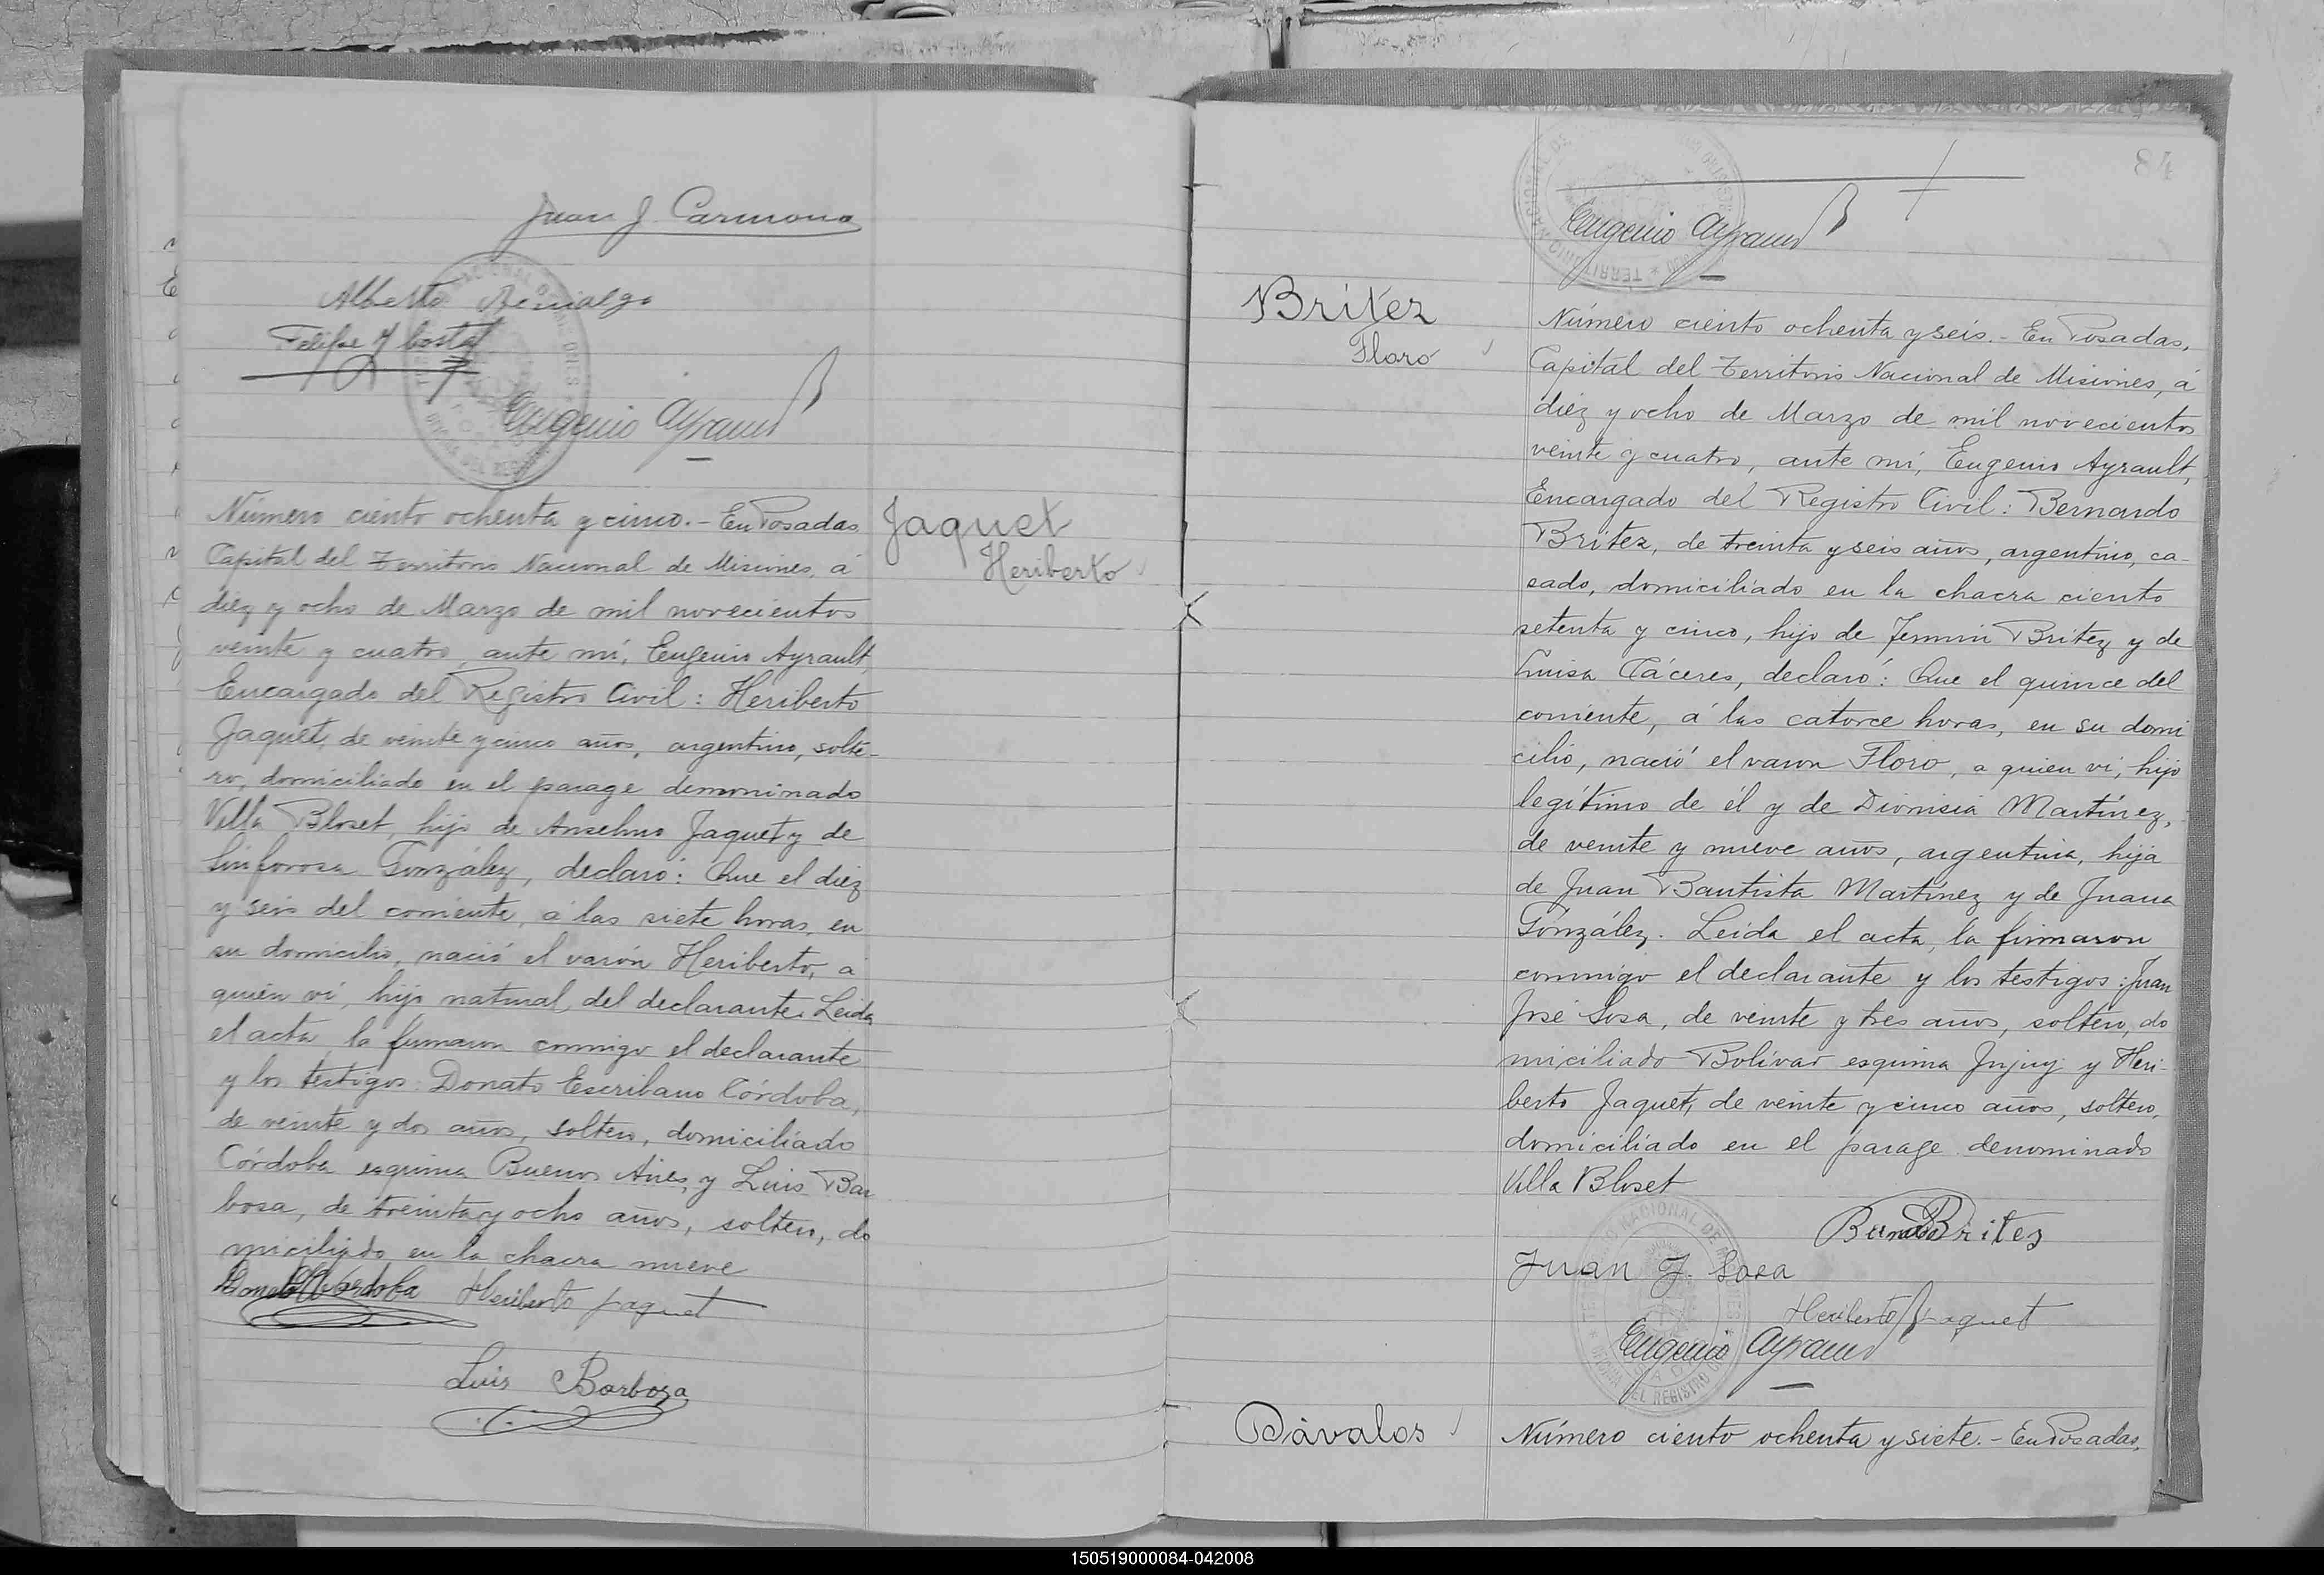 Juan J. Carmona
Alberto
Felipe
Eugenio Ayrault
Número ciento ochenta y cinco.- En Posadas
Capital del Territorio Nacional de Misiones, á
diez y ocho de Marzo de mil novecientos
veinte y cuatro, ante mí, Eugenio Ayrault,
Encargado del Registro Civil: Heriberto
Jaquet, de veinte y cinco años, argentino, solte-
ro, domiciliado en el parage denominado
Villa Bloset, hijo de Anselmo Jaquet y de
Sinforosa González, declaró: Que el diez
y seis del corriente, á las siete horas, en
su domicilio, nació el varón Heriberto, á
quien ví, hijo natural del declarante. Leida
el acta, la firmaron conmigo el declarante
y los testigos: Donato Escribano Córdoba,
de veinte y dos años, soltero, domiciliado
Córdoba esquina Buenos Aires, y Luis Bar
bosa, de treinta y ocho años, soltero, do
miciliado en la chacra nueve
Heriberto Jaquet
Luis Barboza
Jaquet
Heriberto
84
Eugenio Ayrault
Britez
Floro
Número ciento ochenta y seis.- En Posadas,
Capital del Territorio Nacional de Misiones, á
diez y ocho de Marzo de mil novecientos
veinte y cuatro, ante mí, Eugenio Ayrault,
Encargado del Registro Civil: Bernardo
Britez, de treinta y seis años, argentino, ca-
sado, domiciliado en la chacra ciento
setenta y cinco, hijo de Fermin Britez y de
Luisa Cáceres, declaró: Que el quince del
corriente, á las catorce horas, en su domi
cilio, nació el varon Floro, a quien ví, hijo
legítimo de él y de Dionisia Martínez,
de veinte y nueve años, argentina, hija
de Juan Bautista Martínez y de Juana
González. Leida el acta, la firmaron
conmigo el declarante y los testigos: Juan
José Sosa, de veinte y tres años, soltero, do
miciliado Bolívar esquina Jujuy y Heri-
berto Jaquet, de veinte y cinco años, soltero,
domiciliado en el parage denominado
Villa Bloset
Britez
Juan J. Sosa
Heriberto Jaquet
Eugenio Ayrault
Dávalos
Número ciento ochenta y siete.- En Posadas,
150519000084-042008